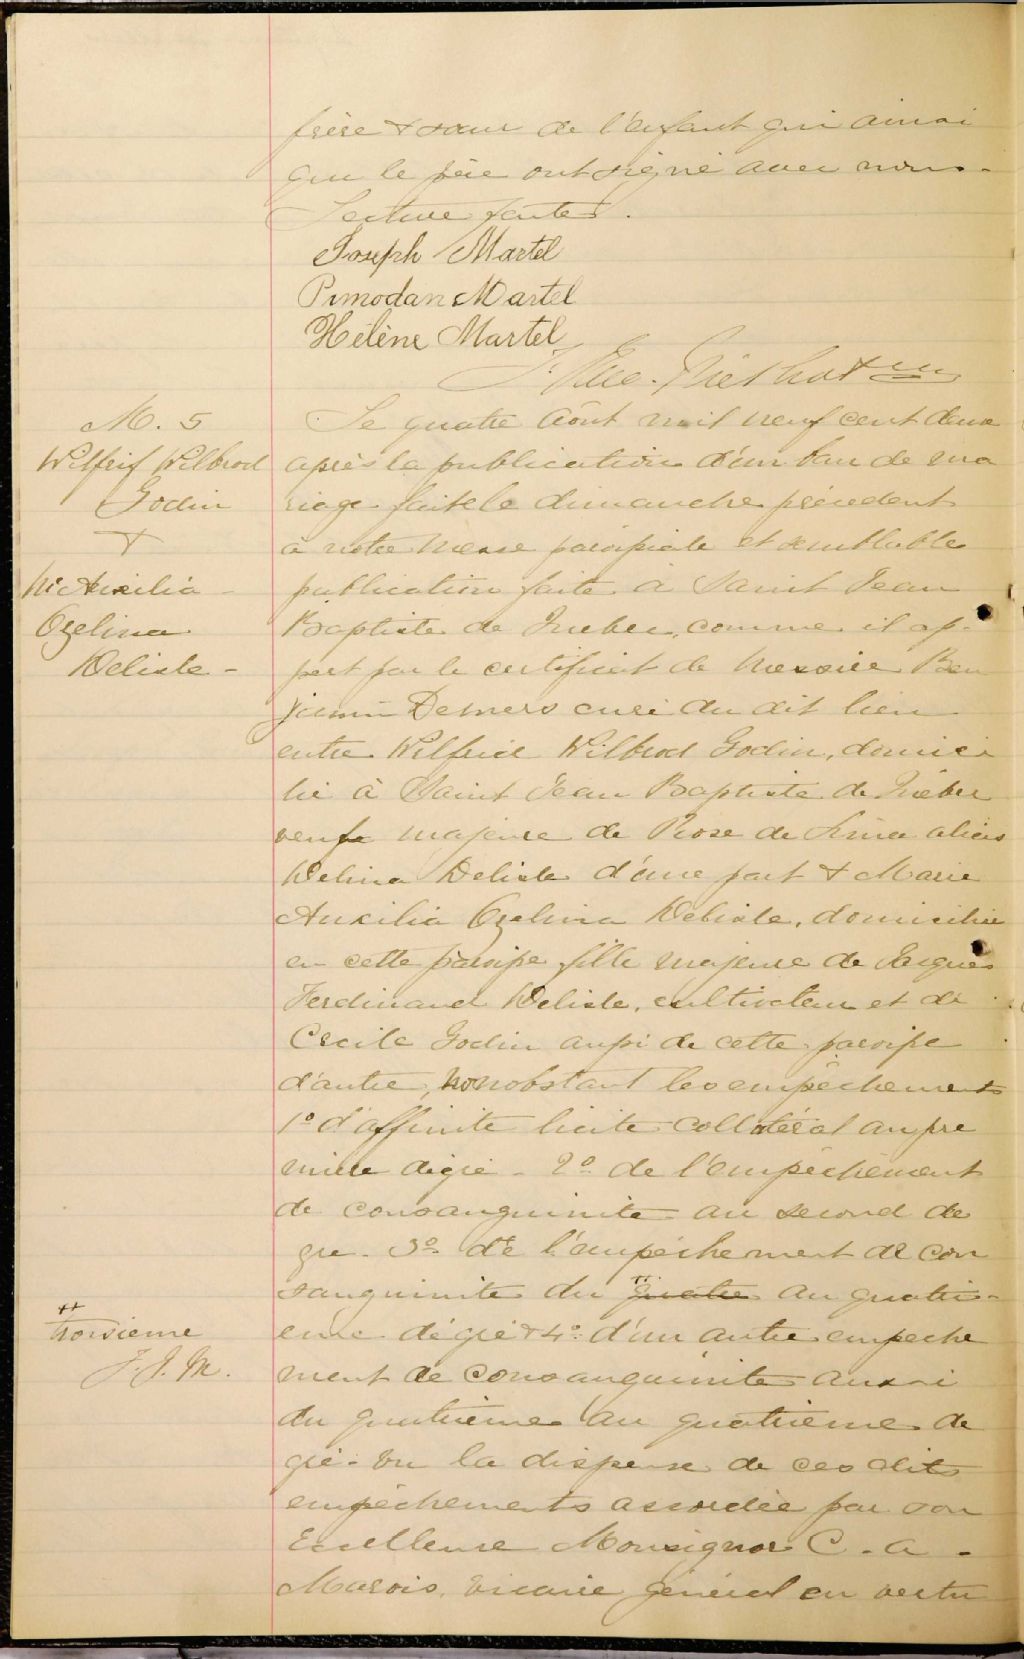 frère & sœur de l'enfant qui ainsi
que le père ont signé avec nous.
Lecture faite.
Joseph Martel
Pimodan Martel
Hélène Martel
M. 5
Wilfrif Wilbrod
Godin
&
M. Auxilia
Ozelina
Delisle -
Le quatre août mil neuf cent deux
après la publication d'un ban de ma
riage faite le dimanche précédent
à notre messe paroissiale et semblable
publication faite à Saint Jean
Baptiste de Québec, comme il ap-
pert par le certificat de Messire Ben
jamin Demers curé du dit lieu
entre Wilfrid Wilbrod Godin, domici
lié à Saint Jean Baptiste de Québec
veuf majeur de Rose de Lima alias
Delima Delisle d'une part & Marie
Auxilia Ozelina Delisle, domiciliée
en cette paroisse fille majeure de Jacques
Ferdinand Delisle, cultivateur et de
Cecile Godin aussi de cette paroisse
d'autre, nonobstant les empêchements
1º d'affinité licite collatéral au pre
mier degré - 2º de l'empêchement
de consanguinité au second de
gré - 3º de l'empêchement de con
sanguinité du ++ quatre au quatri-
ème dégré & 4º d'un autre empêche
ment de consanguinité aussi
du quatrième au quatrième de
gré - vu la dispense de ces dits
empêchements accordée par son
Excellence Monsignor C. A.
Marois, vicaire général en vertu
++
troisieme